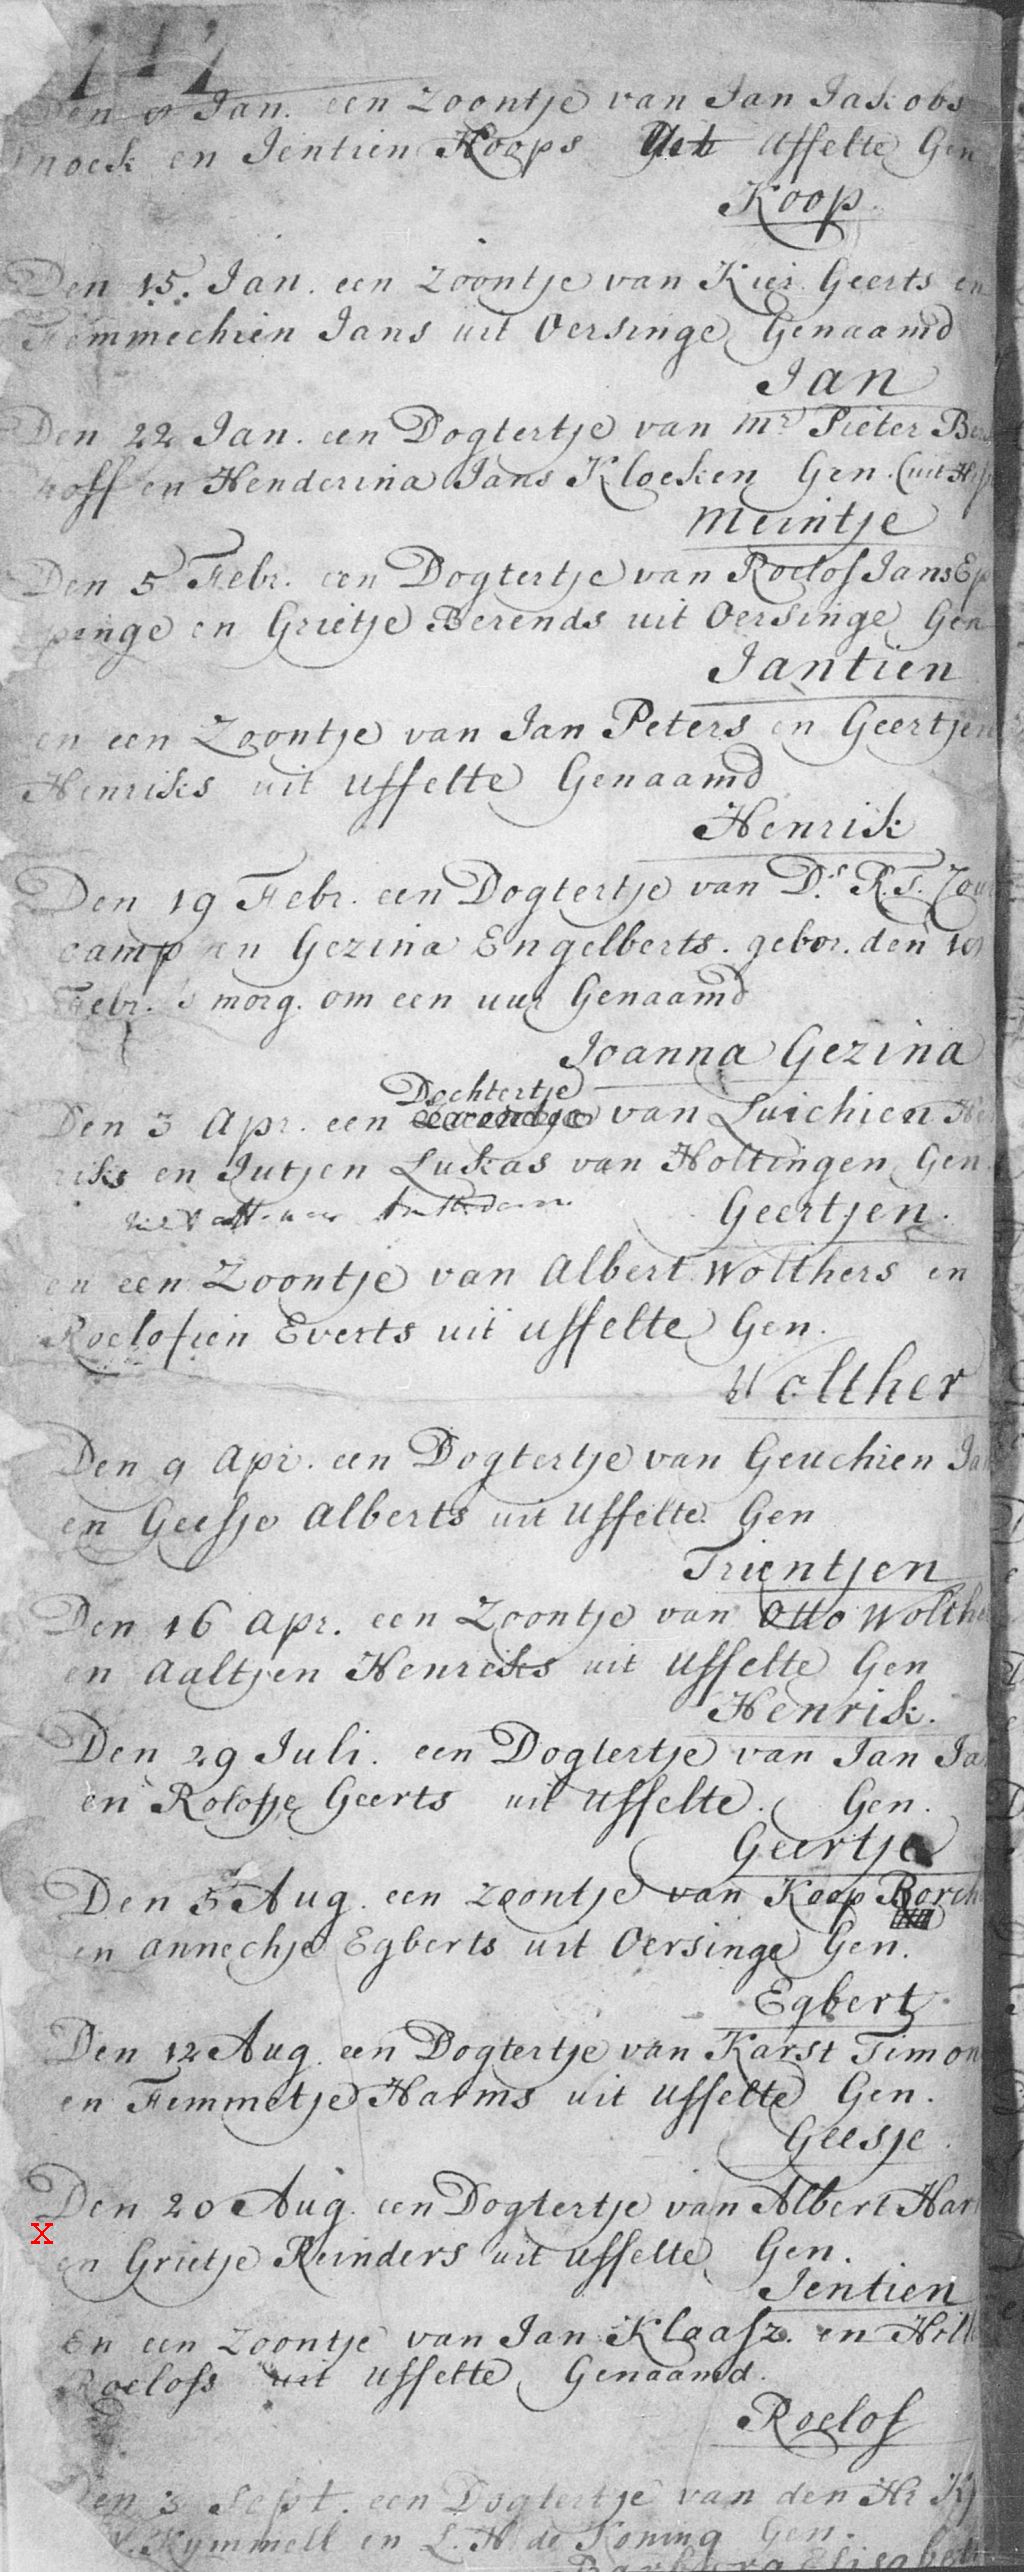 Den 9 Jan. een Zoontje van Jan Jakobs
noek en Jentien Koops Uit Uffelte Gen
Koop.
Den 15. Jan. een Zoontje van Kier Geerts en
Femmechien Jans uit Oersinge Genaamd
Jan
Den 22 Jan. een Dogtertje van Mr Pieter Ber
hoff en Henderina Jans Kloeken Gen. (uit
Meintje
Den 5 Febr. een Dogtertje van Roelof Jans Ep
pinge en Grietje Berends uit Oersinge Gen
Jantien
en een Zoontje van Jan Peters en Geertjen
Henriks uit Uffelte Genaamd
Henrik
Den 19 Febr. een Dogtertje van Ds. R.T. Zou
camp en Gezina Engelberts. gebor. den 10
Febr. 's morg. om een uur Genaamd
Joanna Gezina
Dochtertje
Den 3 Apr. een van Luichien He
riks en Jutjen Lukas van Holtingen Gen.
Geertjen.
en een Zoontje van Albert Wolthers en
Roelofien Everts uit Uffelte Gen.
Wolther
Den 9 Apr. een Dogtertje van Geuchien Jan
en Geesje Alberts uit Uffelte. Gen
Trientjen
Den 16 Apr. een Zoontje van Otto Wolthe
en Aaltjen Henriks uit Uffelte Gen
Henrik.
Den 29 Juli. een Dogtertje van Jan Jan
en Rolofje Geerts uit Uffelte. Gen.
Geertje
Den 5 Aug. een Zoontje van Koop Borch
en Annechje Egberts uit Oersinge Gen.
Egbert
Den 12 Aug. een Dogtertje van Karst Timon
en Femmetje Harms uit Uffelte Gen.
Geesje.
Den 20 Aug. een Dogtertje van Albert Har
X
en Grietje Reinders uit Uffelte Gen.
Jentien
En een Zoontje van Jan Klaasz. en Hille
Roelofs uit Uffelte Genaamd.
Roelof
Den 3 Sept. een Dogtertje van den Hr
Kymmell en L. H. de Koning Gen.
Barbara Elisabeth